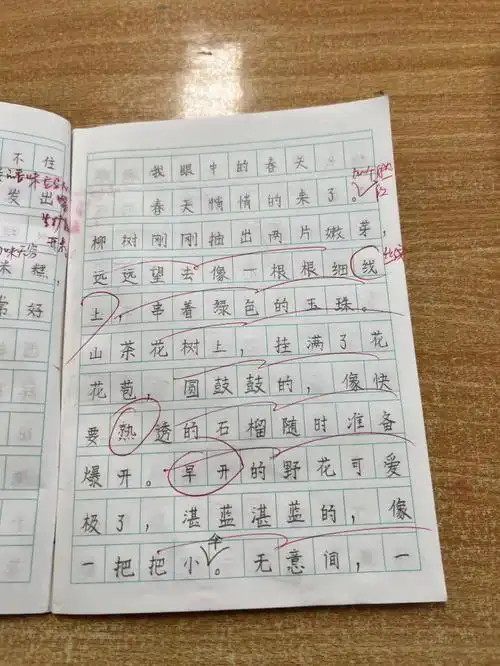 我眼中的春天
春天悄悄的来了。
柳树刚刚抽出两片嫩芽，
远远望去像一根根细线
上，串着绿色的玉珠。
山茶花树上，挂满了花
花苞，圆鼓鼓的，像快
要熟透的石榴随时准备
爆开。早开的野花可爱
极了，湛蓝湛蓝的，像
一把把小伞。无意间，一
不住
发出
米糕，
常好